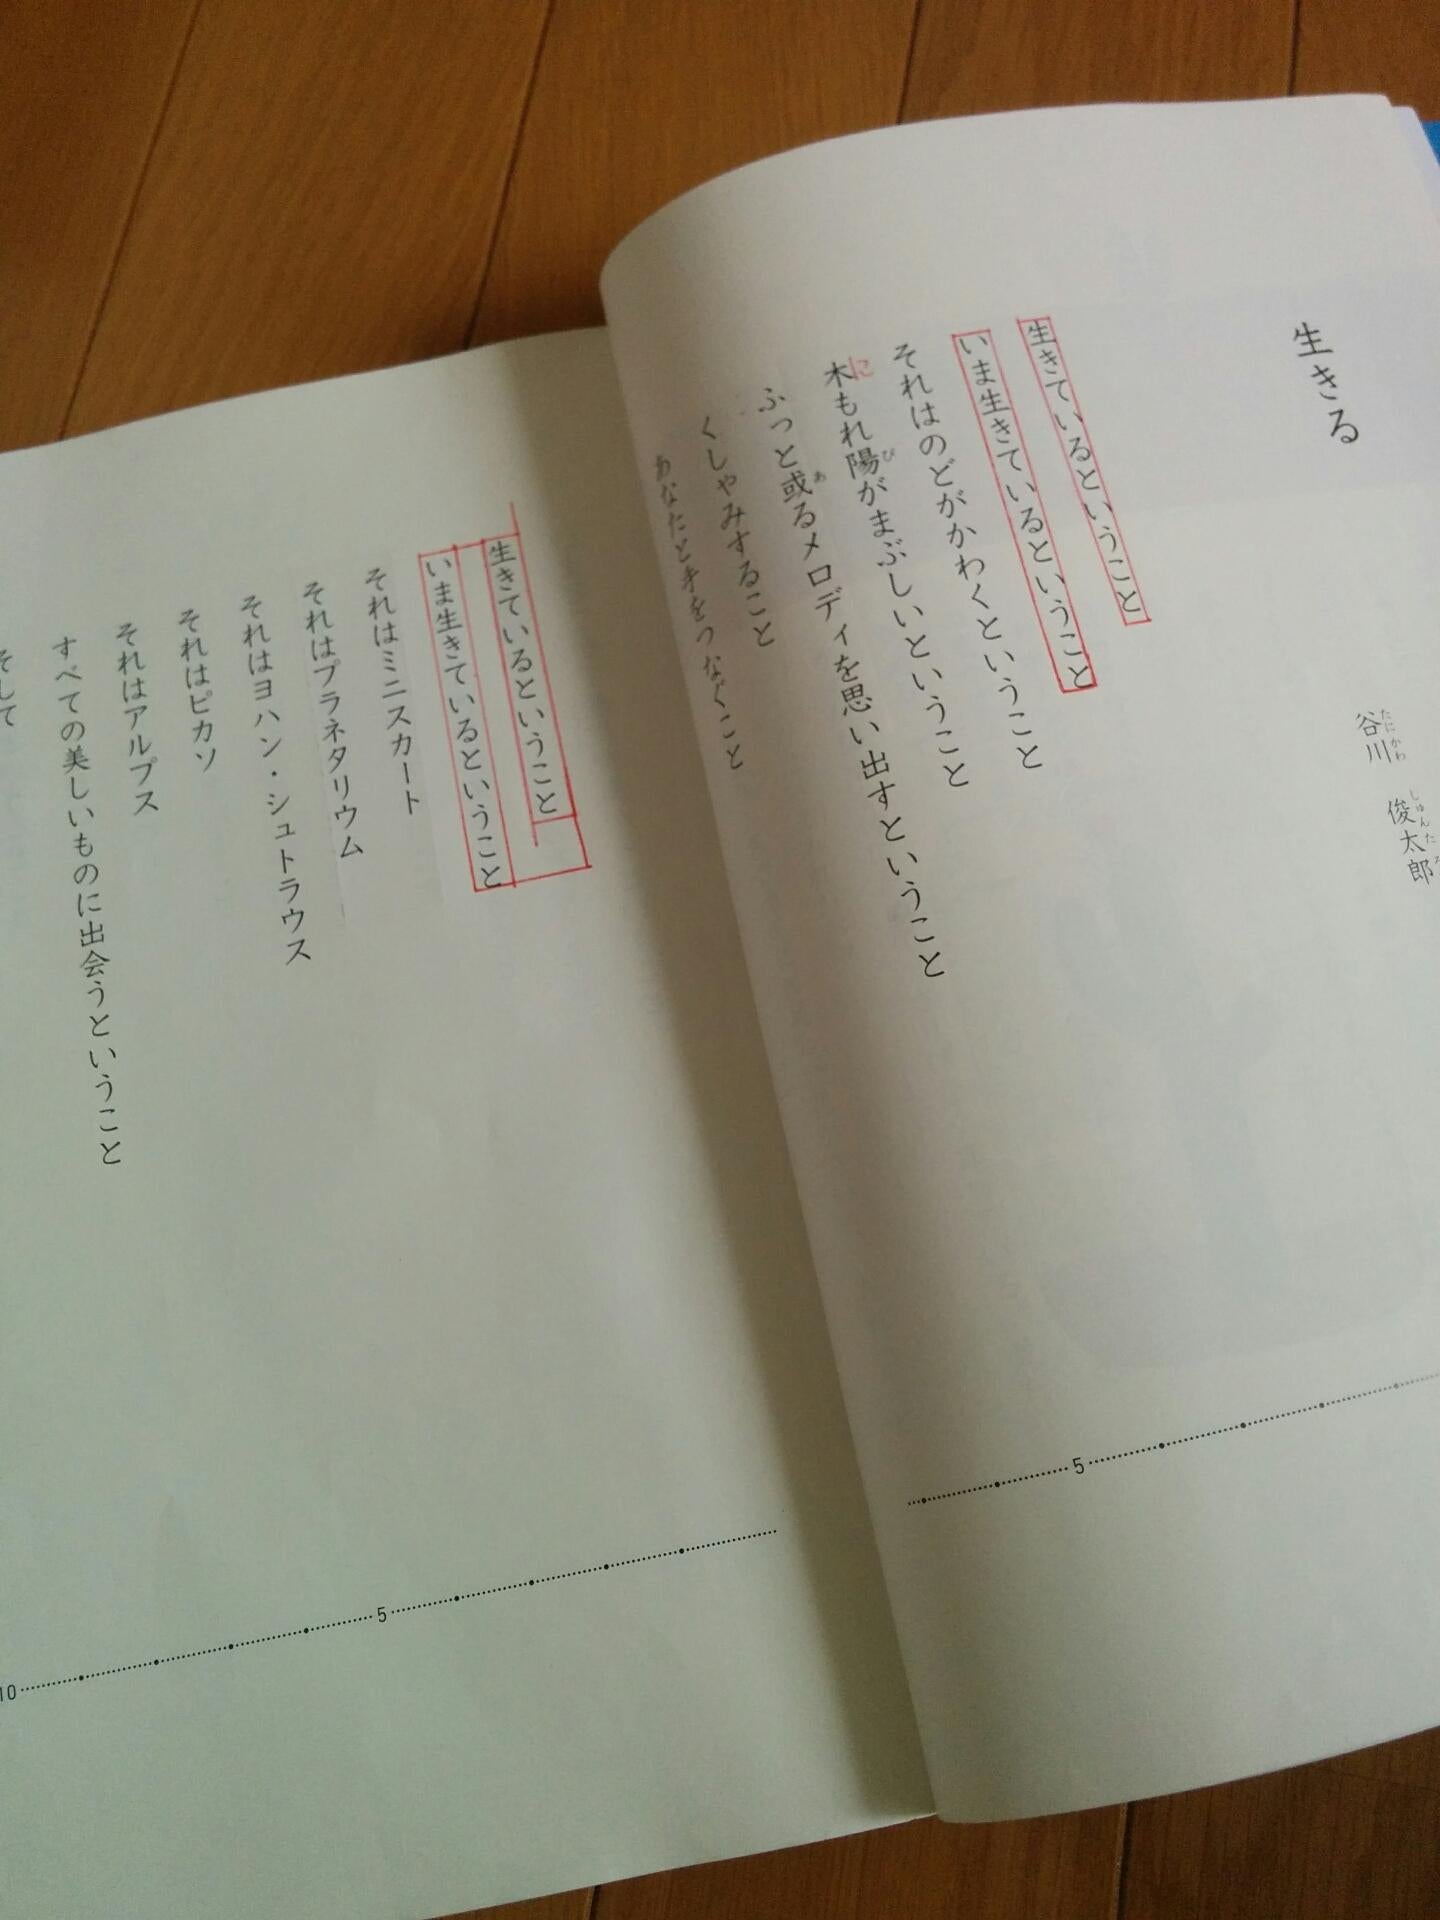 生きる
谷川 俊太郎
たにかわ しゅんたろ
生きているということ
いま生きているということ
それはのどがかわくということ
木もれ陽がまぶしいということ
に
び
ふっと或るメロディを思い出すということ
あ
くしゃみすること
あなたと手をつなぐこと
5
生きているということ
いま生きているということ
それはミニスカート
それはプラネタリウム
それはヨハン・シュトラウス
それはピカソ
それはアルプス
すべての美しいものに出会うということ
そして
5
10